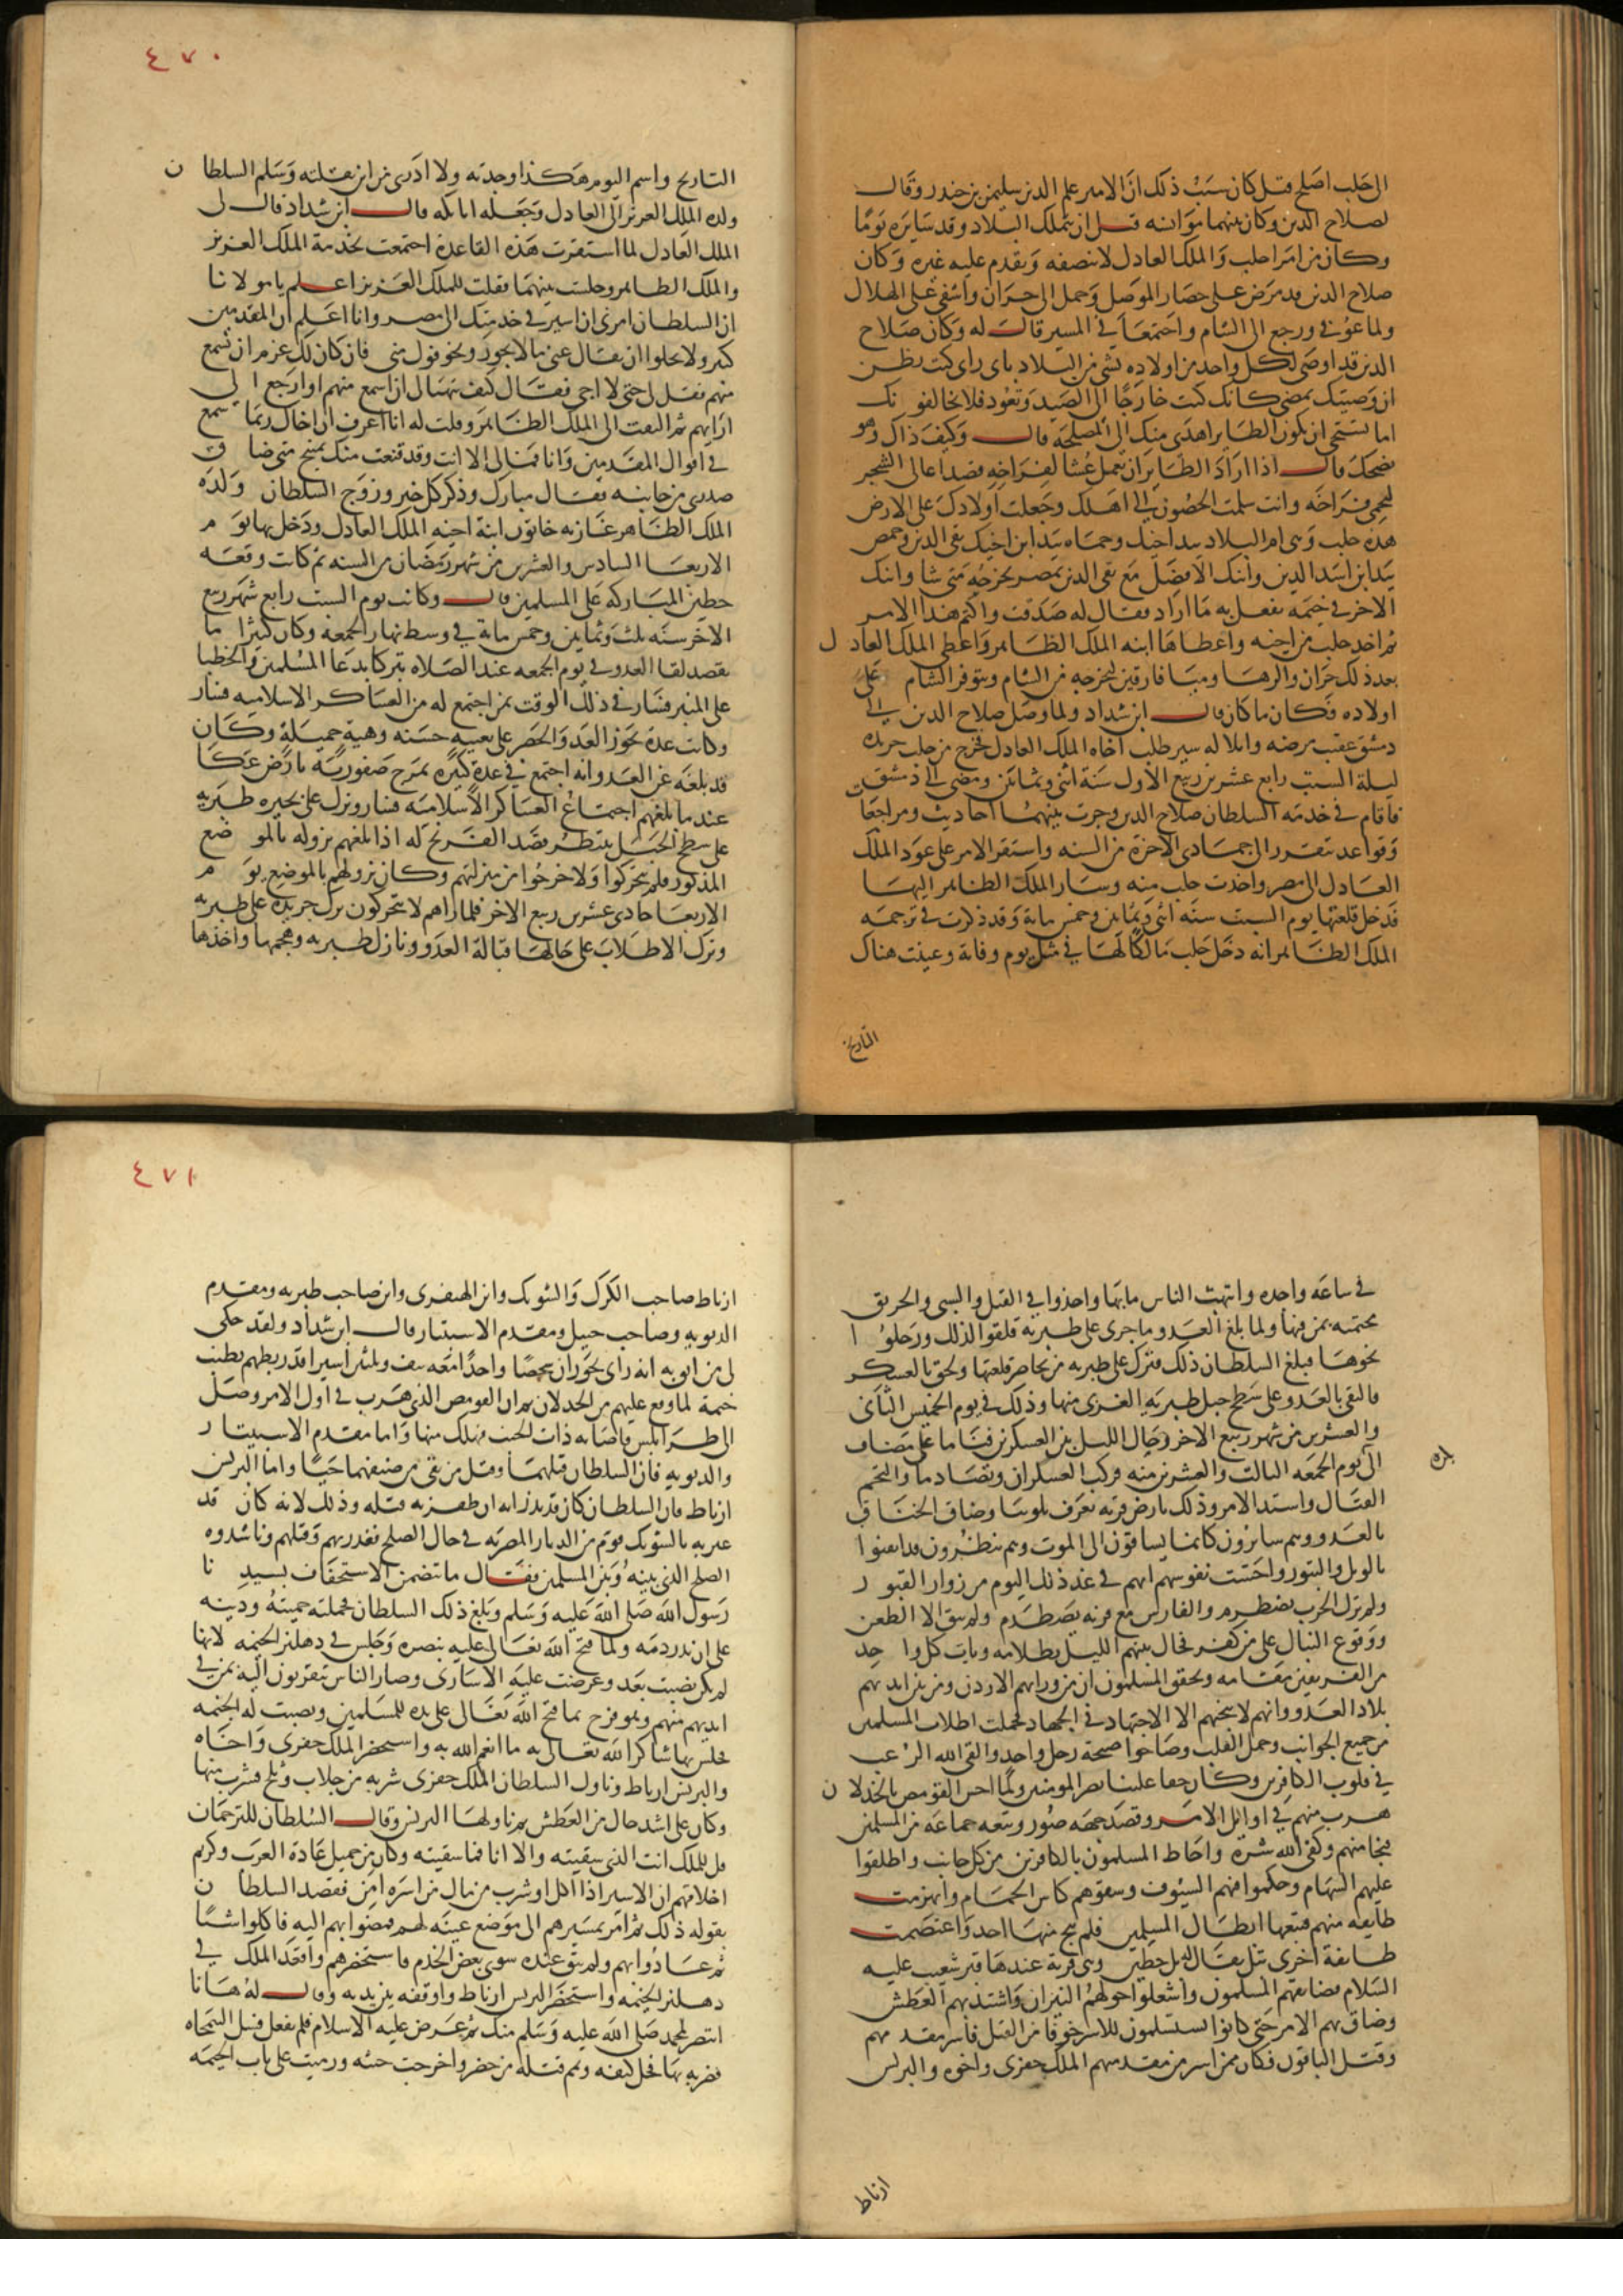 الى حلب اصلح قيل كان سبب ذلك ان الامير علم الدين سليمن بن جندر وقال
لصلاح الدين وكان بينهما موانسه قبل ان يتملك البلاد وقد سايره يوما
وكان من امرا حلب والملك العادل لا ينصفه ويقدم عليه غيره وكان
صلاح الدين قد مرض على حصار الموصل وحمل الى حران واشفى على الهلاك
ولما عوفى ورجع الى الشام واجتمعا فى المسير قال له وكان صلاح
الدين قد اوصى لكل واحد من اولاده بشى من البلاد باى راى كنت تظن
ان وصيتك تمضى كانك كنت خارجا الى الصيد وتعود فلا يخالفونك
اما تستحى ان يكون الطاير اهدى منك الى المصلحه قال وكيف ذاك وهو
يضحك قال اذا اراد الطاير ان يعمل عشا لفراخه قصد اعالى الشجر
ليحمى فراخه وانت سلمت الحصون الى اهلك وجعلت اولادك على الارض
هذه حلب وهى ام البلاد بيد اخيك وحماه بيد ابن اخيك تقى الدين وحمص
بيد ابن اسد الدين وابنك الافضل مع تقى الدين بمصر يخرجه متى شا وابنك
الاخر فى خيمه يفعل به ما اراد فقال له صدقت واكتم هذا الامر
ثم اخذ حلب من اخيه واعطاها ابنه الملك الظاهر واعطى الملك العادل
بعد ذلك حران والرها وميافارقين ليخرجه من الشام ويتوفر الشام على
اولاده فكان ما كان قال ابن شداد ولما وصل صلاح الدين الى
دمشق عقيب مرضه وابلاله سير طلب اخاه الملك العادل فخرج من حلب جريده
ليلة السبت رابع عشرين ربيع الاول سنة اثنى وثمانين ومضى الى دمشق
فاقام فى خدمه السلطان صلاح الدين وجرت بينهما احاديث ومراجعات
وقواعد تتقرر الى جمادى الاخرة من السنه واستقر الامر على عود الملك
العادل الى مصر واخذت حلب منه وسار الملك الظاهر اليها
قدخل قلعتها يوم السبت سنه اثنى وثمانين وخمس ماية وقد ذكرت فى ترجمه
الملك الظاهر انه دخل حلب مالكا لها فى مثل يوم وفاته وعينت هناك
التاريخ
٤٧٠
التاريخ واسم اليوم هكذا وجدته ولا ادرى من اين نقلته وسلم السلطان
ولده الملك العزيز الى العادل وجعله اتابكه قال ابن شداد قال لى
الملك العادل لما استقرت هذه القاعدة اجتمعت بخدمة الملك العزيز
والملك الظاهر وجلست بينهما فقلت للملك العزيز اعلم يا مولانا
ان السلطان امرنى ان اسير فى خدمتك الى مصر وانا اعلم ان المفسدين
كثير ولا يخلوا ان يقال عنى ما لا يجوز ويخوفوك منى فان كان لك عزم ان تسمع
منهم فقل لى حتى لا اجى فقال كيف يتهيا لى ان اسمع منهم او ارجع الى
ارايهم ثم التفت الى الملك الظاهر وقلت له انا اعرف ان اخاك ربما سمع
فى اقوال المفسدين وانا فمالى الا انت وقد قنعت منك بمنبج متى ضاق
صدرى من جانبه فقال مبارك وذكر كل خير وزوج السلطان ولده
الملك الظاهر غازيه خاتون ابنة اخيه الملك العادل ودخل بها يوم
الاربعا السادس والعشرين من شهر رمضان من السنه ثم كانت وقعه
حطين المباركه على المسلمين قال وكانت يوم السبت رابع شهر ربيع
الاخر سنه ثلث وثمانين وخمس ماية فى وسط نهار الجمعه وكان كثيرا ما
يقصد لقا العدو فى يوم الجمعه عند الصلاه تبركا بدعا المسلمين والخطبا
على المنابر فسار فى ذلك الوقت بمن اجتمع له من العساكر الاسلاميه
وكانت عدة تجوز العد والحصر على تعبيه حسنه وهيئة جميلة وكان
قد بلغه عن العدو انه اجتمع فى عدة كثيرة بمرج صفوريه بارض عكا
عندما بلغهم اجتماع العساكر الاسلاميه فسار ونزل على بحيره طبريه
على سطح الجبل ينتظر قصد الفرنج له اذا بلغهم نزوله بالموضع
المذكور فلم يتحركوا ولا خرجوا من منزلتهم وكان نزولهم بالموضع يوم
الاربعا حادى عشرين ربيع الاخر فلما راهم لا يتحركون نزل جريدة على طبريه
وترك الاطلاب على حالها قبالة العدو ونازل طبريه وهجمها واخذها
فى ساعه واحده وانتهب الناس ما بها واخذوا فى القتل والسبى والحريق
محتميه بمن فيها ولما بلغ العدو ما جرى على طبرية قلقوا لذلك ورحلوا
نحوها فبلغ السلطان ذلك فترك على طبريه من يحاصر قلعتها ولحق بالعسكر
فالتقى بالعدو على سطح جبل طبريه الغربى منها وذلك فى يوم الخميس الثانى
والعشرين من شهر ربيع الاخر وحال الليل بين العسكرين فناما على مصاف
الى يوم الجمعه الثالث والعشرين منه فركب العسكران وتصادما والتحم
القتال واشتد الامر وذلك بارض قريه تعرف بلوبيا وضاق الخناق
بالعدو وهم سايرون كانما يساقون الى الموت وهم ينظرون قد ايقنوا
بالويل والثبور واحست نفوسهم انهم فى غد ذلك اليوم من زوار القبور
ولم تزل الحرب تضطرم والفارس مع قرنه يصطدم ولم يبق الا الطعن
ووقوع النبال على من كفر فحال بينهم الليل بظلامه وبات كل واحد
من الفريقين بمقامه وتحقق المسلمون ان من ورايهم الاردن ومن بين ايديهم
بلاد العدو وانهم لا ينجيهم الا الاجتهاد فى الجهاد فحملت اطلاب المسلمين
من جميع الجوانب وحمل القلب وصاحوا صيحة رجل واحد والقى الله الرعب
فى قلوب الكافرين وكان حقا علينا نصر المومنين ولما احس القومص بالخدلان
هرب منهم فى اوايل الامر وقصد جهه صور وتبعه جماعه من المسلمين
فنجا منهم وكفى الله شره واحاط المسلمون بالكافرين من كل جانب واطلقوا
عليهم السهام وحكموا فيهم السيوف وسقوهم كاس الحمام وانهزمت
طايفه منهم فتبعها ابطال المسلمين فلم ينج منها احد واعتصمت
طايفة اخرى بتل يقال له تل حطين وهى قرية عندها قبر شعيب عليه
السلام فضايقهم المسلمون واشعلوا حولهم النيران واشتد بهم العطش
وضاق بهم الامر حتى كانوا يستسلمون للاسر خوفا من القتل فاسر مقدمهم
وقتل الباقون فكان ممن اسر من مقدميهم الملك جفرى واخوه والبرنس
ارناط
٤٧١
ارناط صاحب الكرك والشوبك وابن الهنفرى وابن صاحب طبريه ومقدم
الديويه وصاحب جبيل ومقدم الاسبتار قال ابن شداد ولقد حكى
لى من اثق به انه راى بحوران شخصا واحدا معه نيف وثلثين اسيرا قد ربطهم بطنب
خيمة لما وقع عليهم من الخدلان ثم ان القومص الذى هرب فى اول الامر وصل
الى طرابلس فاصابه ذات الجنب فهلك منها واما مقدم الاسبيتار
والديويه فان السلطان قتلهما وقتل من بقى من صنفهما حيا واما البرنس
ارناط فان السلطان كان قد نذر انه ان ظفر به قتله وذلك لانه كان قد
عبر به بالشوبك قوم من الديار المصريه فى حال الصلح فغدر بهم وقتلهم وناشدوه
الصلح الذى بينه وبين المسلمين فقال ما يتضمن الاستخفاف بسيدنا
رسول الله صلى الله عليه وسلم وبلغ ذلك السلطان فحملته حميته ودينه
على ان نذر دمه ولما فتح الله تعالى عليه بنصره وجلس فى دهليز الخيمه لانها
لم يكن نصبت بعد وعرضت عليه الاسارى وصار الناس يتقربون اليه بمن فى
ايديهم منهم وهو فرح بما فتح الله تعالى على يده للمسلمين ونصبت له الخيمه
فجلس بها شاكرا لله تعالى به ما انعم الله به واستحضر الملك جفرى واخاه
والبرنس ارناط وناول السلطان الملك جفرى شربه من جلاب وثلج فشرب منها
وكان على اشد حال من العطش ثم ناولها البرنس وقال السلطان للترجمان
قل للملك انت الذى سقيته والا انا فما سقيته وكان من جميل عادة العرب وكريم
اخلاقهم ان الاسير اذا اكل او شرب من مال من اسره امن فقصد السلطان
بقوله ذلك ثم امر بمسيرهم الى موضع عينه لهم فمضوا بهم اليه فاكلوا شيا
ثم عادوا بهم ولم يبق عنده سوى بعض الخدم فاستحضرهم واقعد الملك فى
دهليز الخيمه واستحضر البرنس ارناط واوقفه بين يديه وقال له ها انا
انتصر لمحمد صلى الله عليه وسلم منك ثم عرض عليه الاسلام فلم يفعل فسل النمجاه
فضربه بها فحل كتفه وتمم قتله من حضر واخرجت جثته ورميت على باب الخيمه